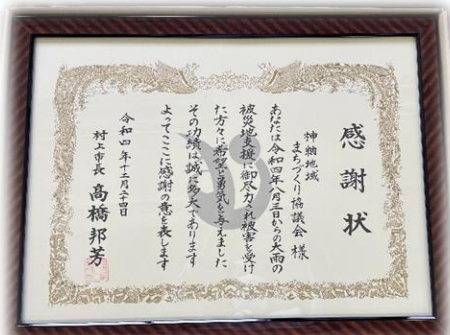 感謝状
神納地域
まちづくり協議会 様
あなたは令和四年八月三日からの大雨の
被災地支援に御尽力され被害を受け
た方々に希望と勇気を与えました
その功績は誠に多大であります
よってここに感謝の意を表します
令和四年十二月二十四日
村上市長 高橋邦芳